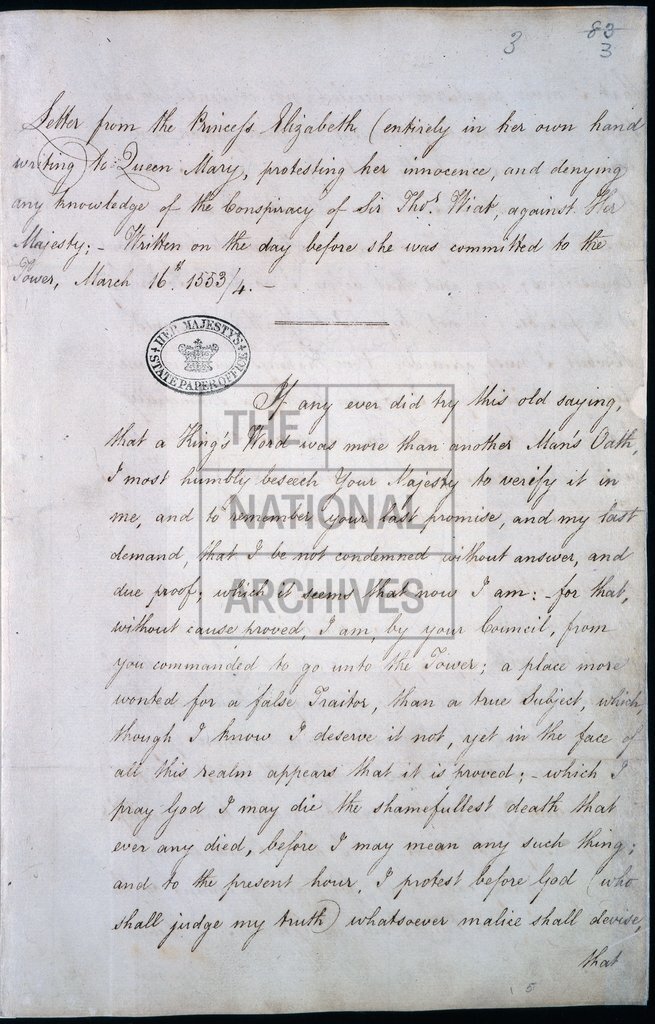 3
83
3
Letter from the Princess Elizabeth (entirely in her own hand
writing) to Queen Mary, protesting her innocence, and denying
any knowledge of the Conspiracy of Sir Thos. Wiat, against Her
Majesty; - Written on the day before she was committed to the
Tower, March 16th. 1553/4. -
HER MAJESTY'S
STATE PAPER OFFICE
If any ever did try this old saying,
that a King's Word was more than another Man's Oath,
I most humbly beseech Your Majesty to verify it in
me, and to remember your last promise, and my last
demand, that I be not condemned without answer, and
due proof; which it seems that now I am: - for that,
without cause proved, I am, by your Council, from
you commanded to go unto the Tower; a place more
wonted for a false Traitor, than a true Subject, which,
though I know I deserve it not, yet in the face of
all this realm appears that it is proved; - which I
pray God I may die the shamefullest death that
ever any died, before I may mean any such thing;
and to the present hour, I protest before God (who
shall judge my truth) whatsoever malice shall devise,
that
THE
NATIONAL
ARCHIVES
5